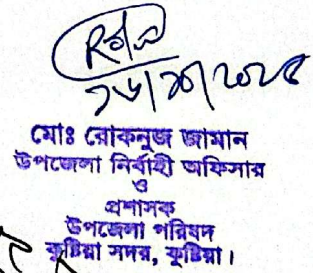 মোঃ রোকনুজ জামান
উপজেলা নির্বাহী অফিসার
ও
প্রশাসক
উপজেলা পরিষদ
কুষ্টিয়া সদর, কুষ্টিয়া।